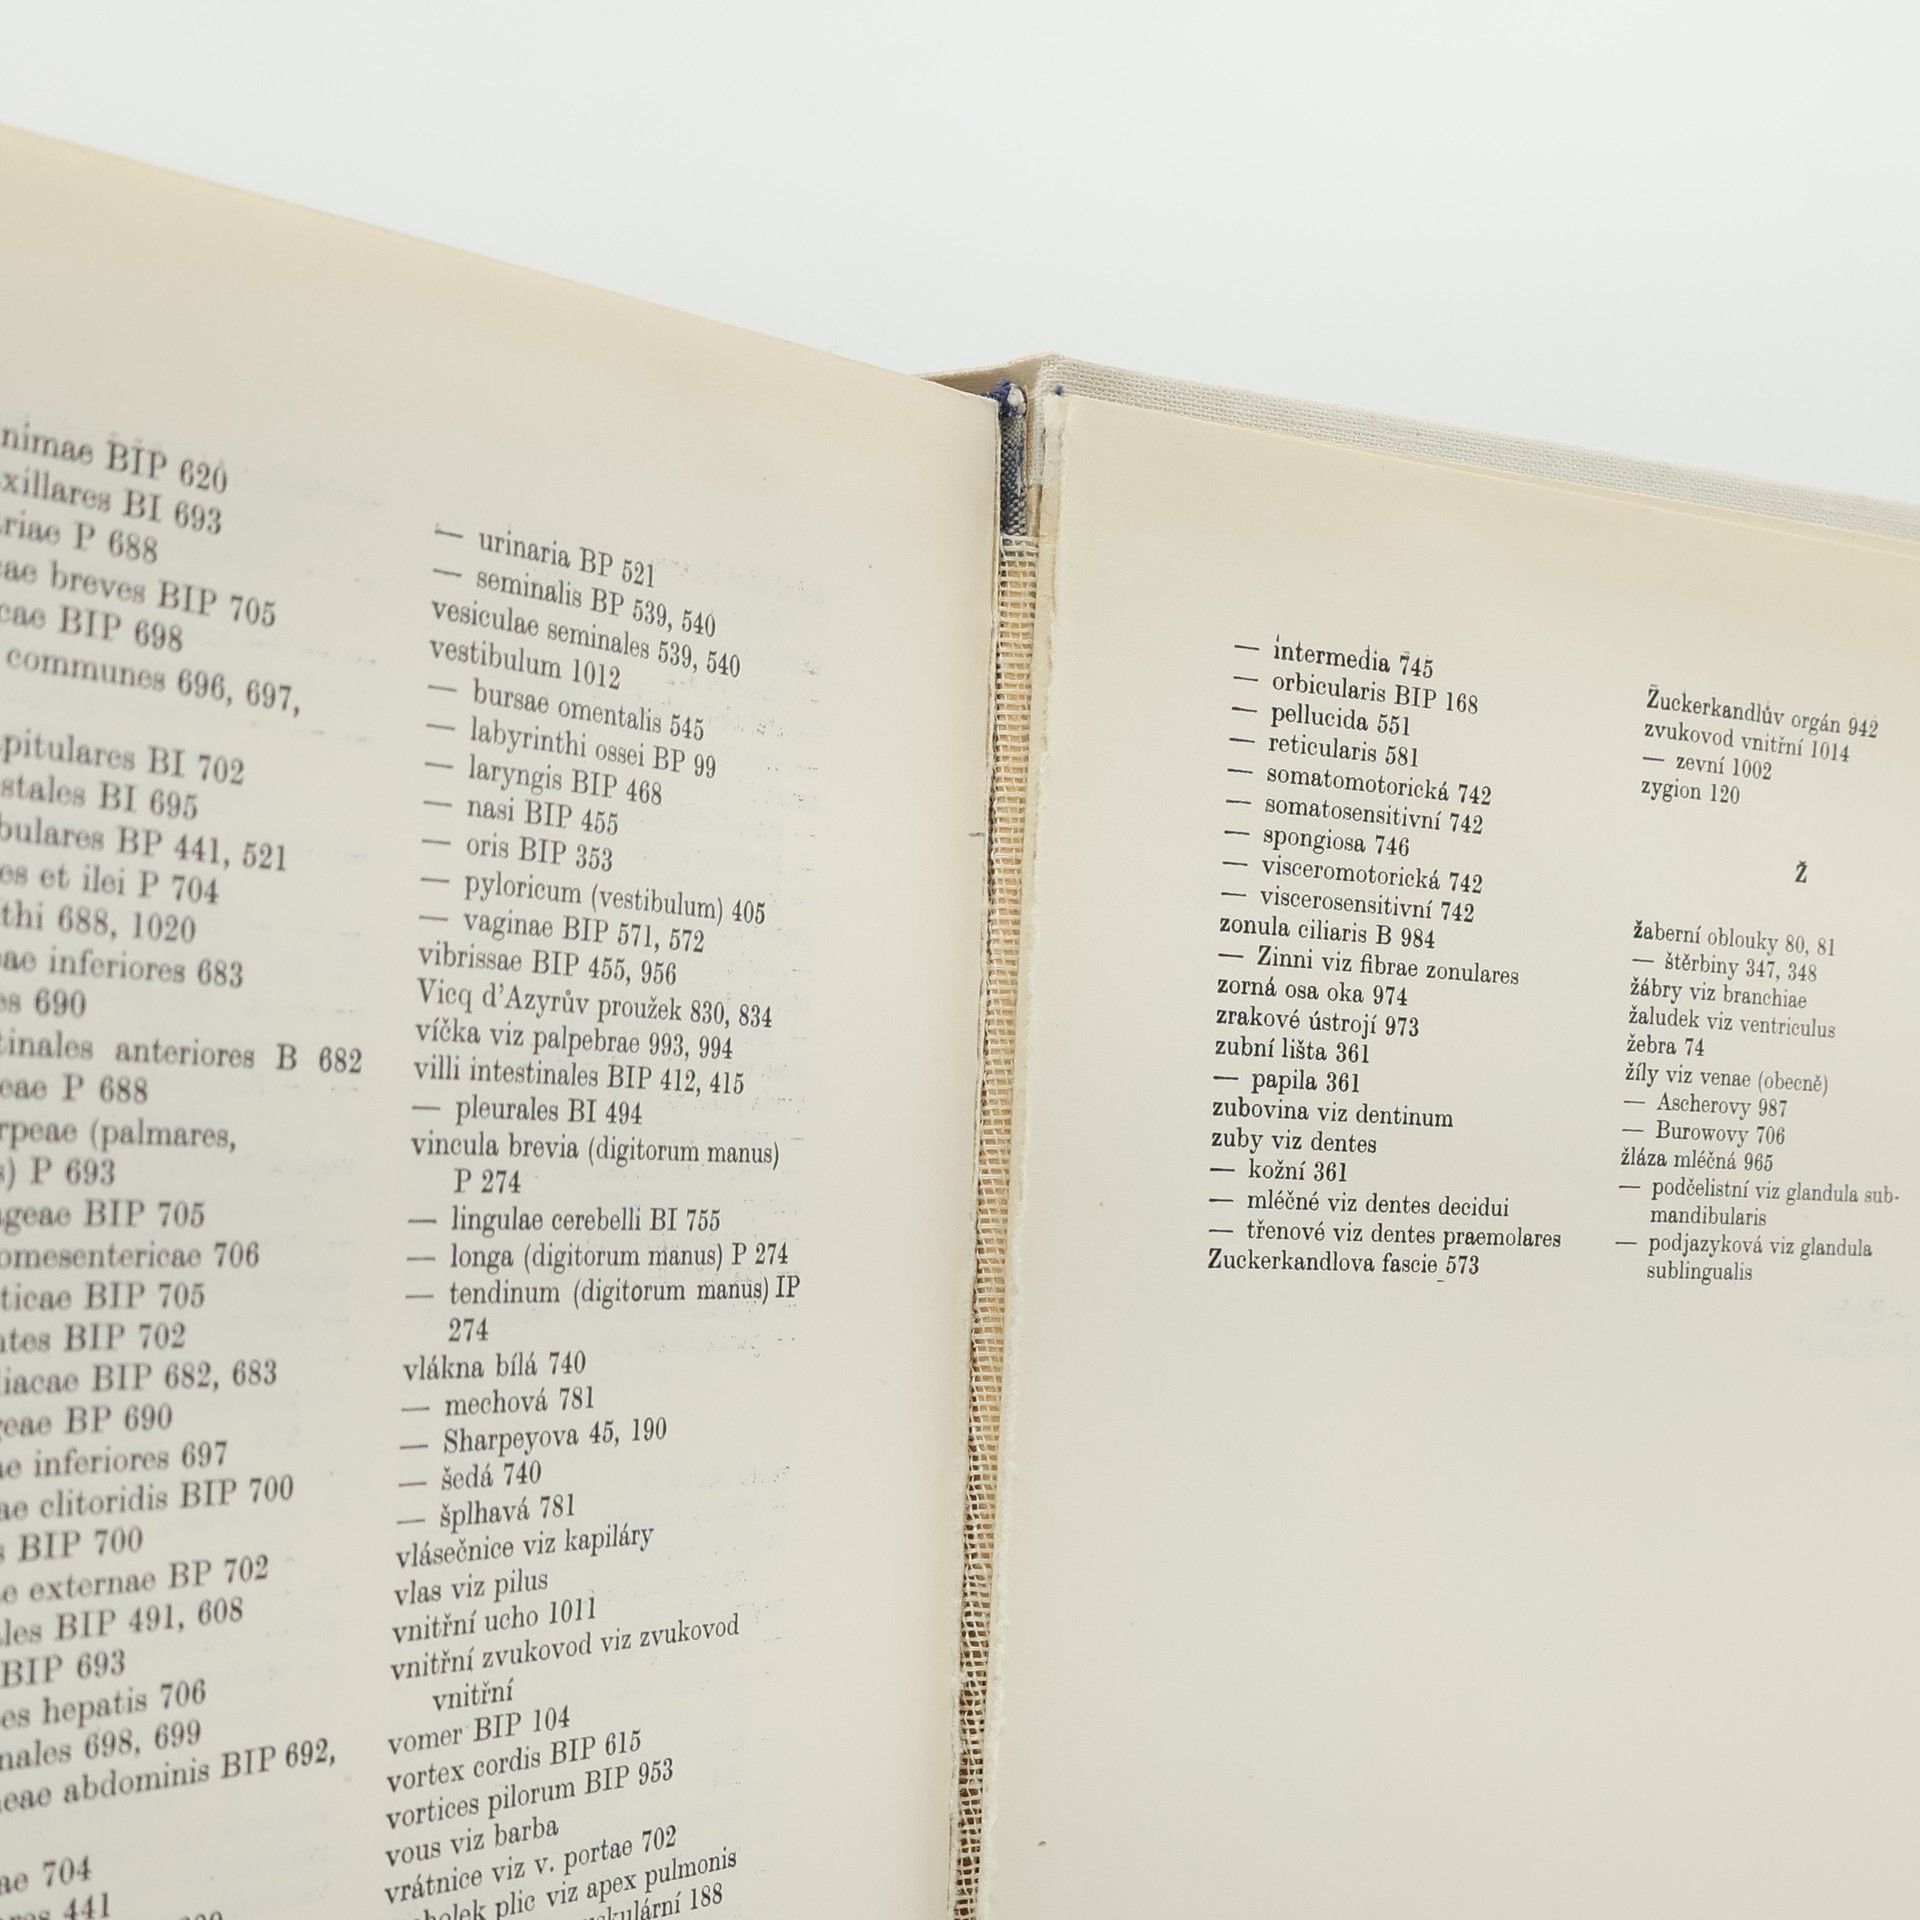 BIP 620
BI 693
P 688
breves BIP 705
BIP 698
communes 696, 697,
BI 702
BI 695
BP 441, 521
et ilei P 704
688, 1020
inferiores 683
690
anteriores B 682
P 688
(palmares,
P 693
BIP 705
706
BIP 705
BIP 702
BIP 682, 683
BP 690
inferiores 697
clitoridis BIP 700
BIP 700
externae BP 702
BIP 491, 608
BIP 693
hepatis 706
698, 699
abdominis BIP 692,
704
441
— urinaria BP 521
— seminalis BP 539, 540
vesiculae seminales 539, 540
vestibulum 1012
— bursae omentalis 545
— labyrinthi ossei BP 99
— laryngis BIP 468
— nasi BIP 455
— oris BIP 353
— pyloricum (vestibulum) 405
— vaginae BIP 571, 572
vibrissae BIP 455, 956
Vicq d'Azyrův proužek 830, 834
víčka viz palpebrae 993, 994
villi intestinales BIP 412, 415
— pleurales BI 494
vincula brevia (digitorum manus)
P 274
— lingulae cerebelli BI 755
— longa (digitorum manus) P 274
— tendinum (digitorum manus) IP
274
vlákna bílá 740
— mechová 781
— Sharpeyova 45, 190
— šedá 740
— šplhavá 781
vlásečnice viz kapiláry
vlas viz pilus
vnitřní ucho 1011
vnitřní zvukovod viz zvukovod
vnitřní
vomer BIP 104
vortex cordis BIP 615
vortices pilorum BIP 953
vous viz barba
vrátnice viz v. portae 702
plic viz apex pulmonis
188
— intermedia 745
— orbicularis BIP 168
— pellucida 551
— reticularis 581
— somatomotorická 742
— somatosensitivní 742
— spongiosa 746
— visceromotorická 742
— viscerosensitivní 742
zonula ciliaris B 984
— Zinni viz fibrae zonulares
zorná osa oka 974
zrakové ústrojí 973
zubní lišta 361
— papila 361
zubovina viz dentinum
zuby viz dentes
— kožní 361
— mléčné viz dentes decidui
— třenové viz dentes praemolares
Zuckerkandlova fascie 573
Zuckerkandlův orgán 942
zvukovod vnitřní 1014
— zevní 1002
zygion 120
Ž
žaberní oblouky 80, 81
— štěrbiny 347, 348
žábry viz branchiae
žaludek viz ventriculus
žebra 74
žíly viz venae (obecně)
— Ascherovy 987
— Burowovy 706
žláza mléčná 965
— podčelistní viz glandula sub-
mandibularis
— podjazyková viz glandula
sublingualis